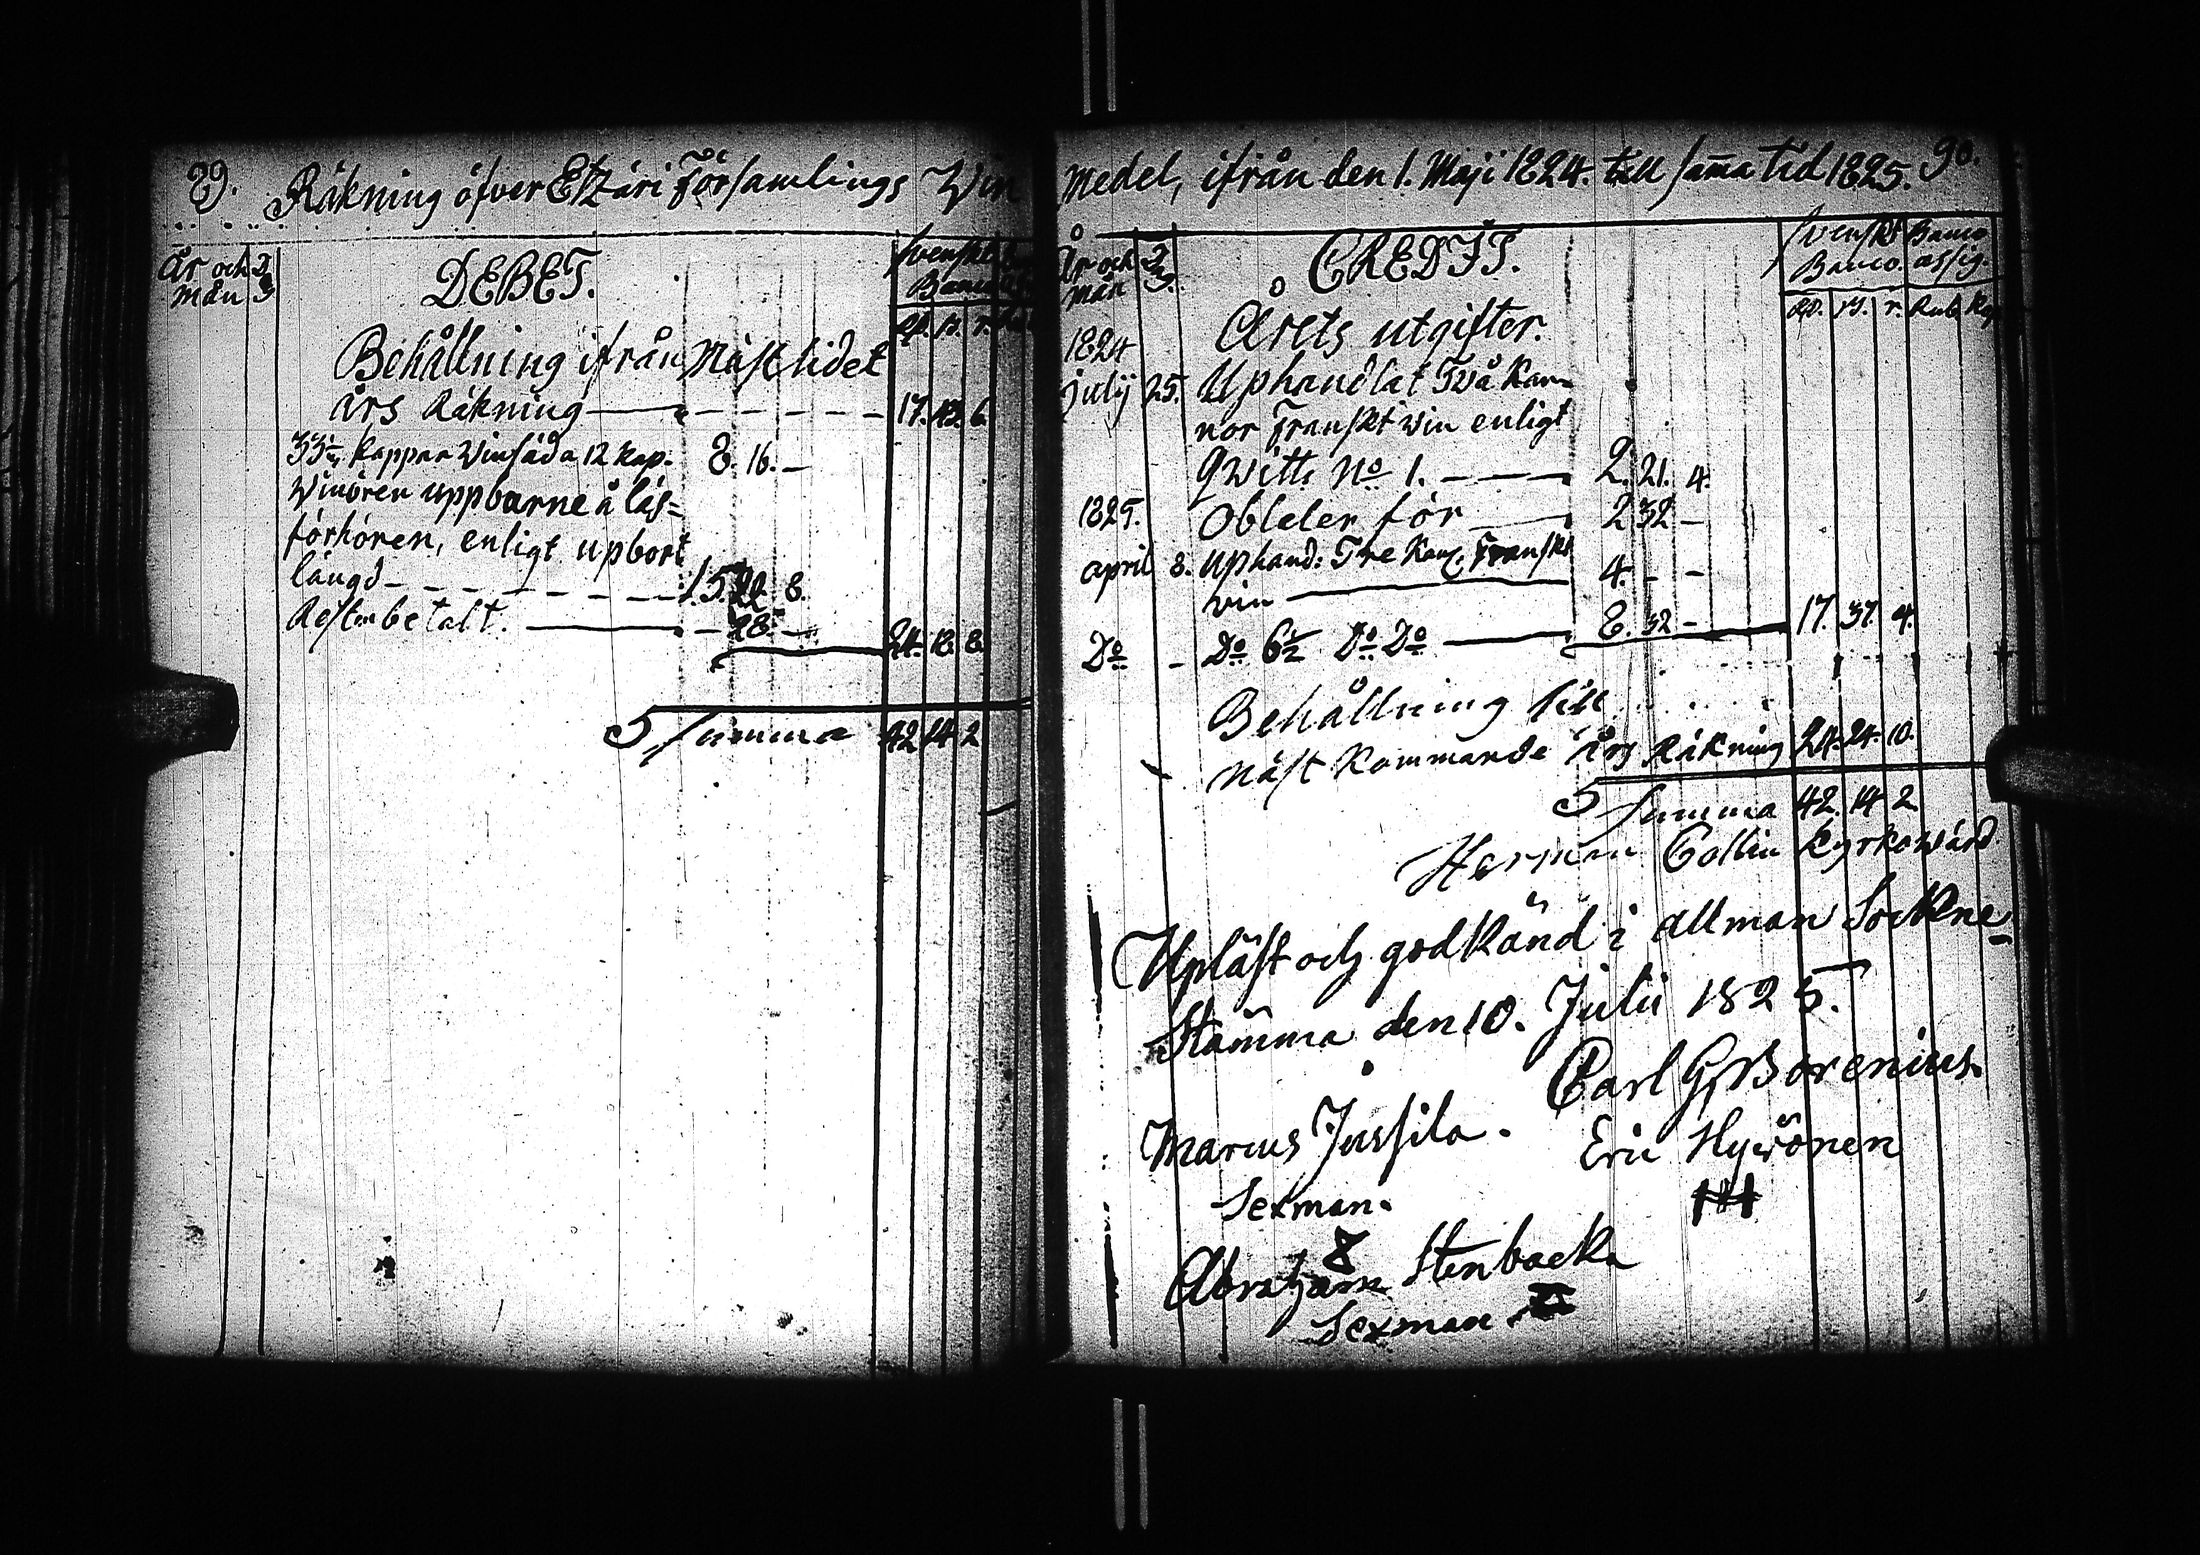 89.
Räkning öfver Etzäri Församlings Win
År och
Mån
DEBET.
Svenskt
Banco
Behållning ifrån Näst lidet
Års Räkning 17. 43. 6.
33½ Kappar Winsäd a 12 kap. 8. 16. –
Winören uppburne å läs-
förhören, enligt upbörs
längd 15. 22. 8.
Rest. betalt. – 28. –
24. 18. 8.
Summa 42 14 2
Medel, ifrån den 1. Maji 1824. till sama tid 1825. 90.
År och
Mån
CREDIT.
Svenskt
Banco.
Banco
assig.
Rd. ß. r. Rub. Kop
Årets utgifter.
1824
Julij 25. Uphandlat Två Kan-
nor Franskt vin enligt
Qwitt: No 1. 2. 21. 4.
1825. Oblater för 2 32 –
April 8. Uphand: Tre Kan. Franskt
vin 4. – –
Do – Do 6½ Do Do 8. 32 – 17. 37. 4.
Behållning till
näst Kommande Års Räkning 24. 24. 10.
Summa 42. 14 2
Herman Collin Kyrkovärd
Upläst och godkänd i allmän Sockne-
Stämma den 10. Julii 1825.
Carl G. Borenius.
Marcus Jussila. Eric Hywönen
Sexman.
Abraham Stenbacka
Sexman